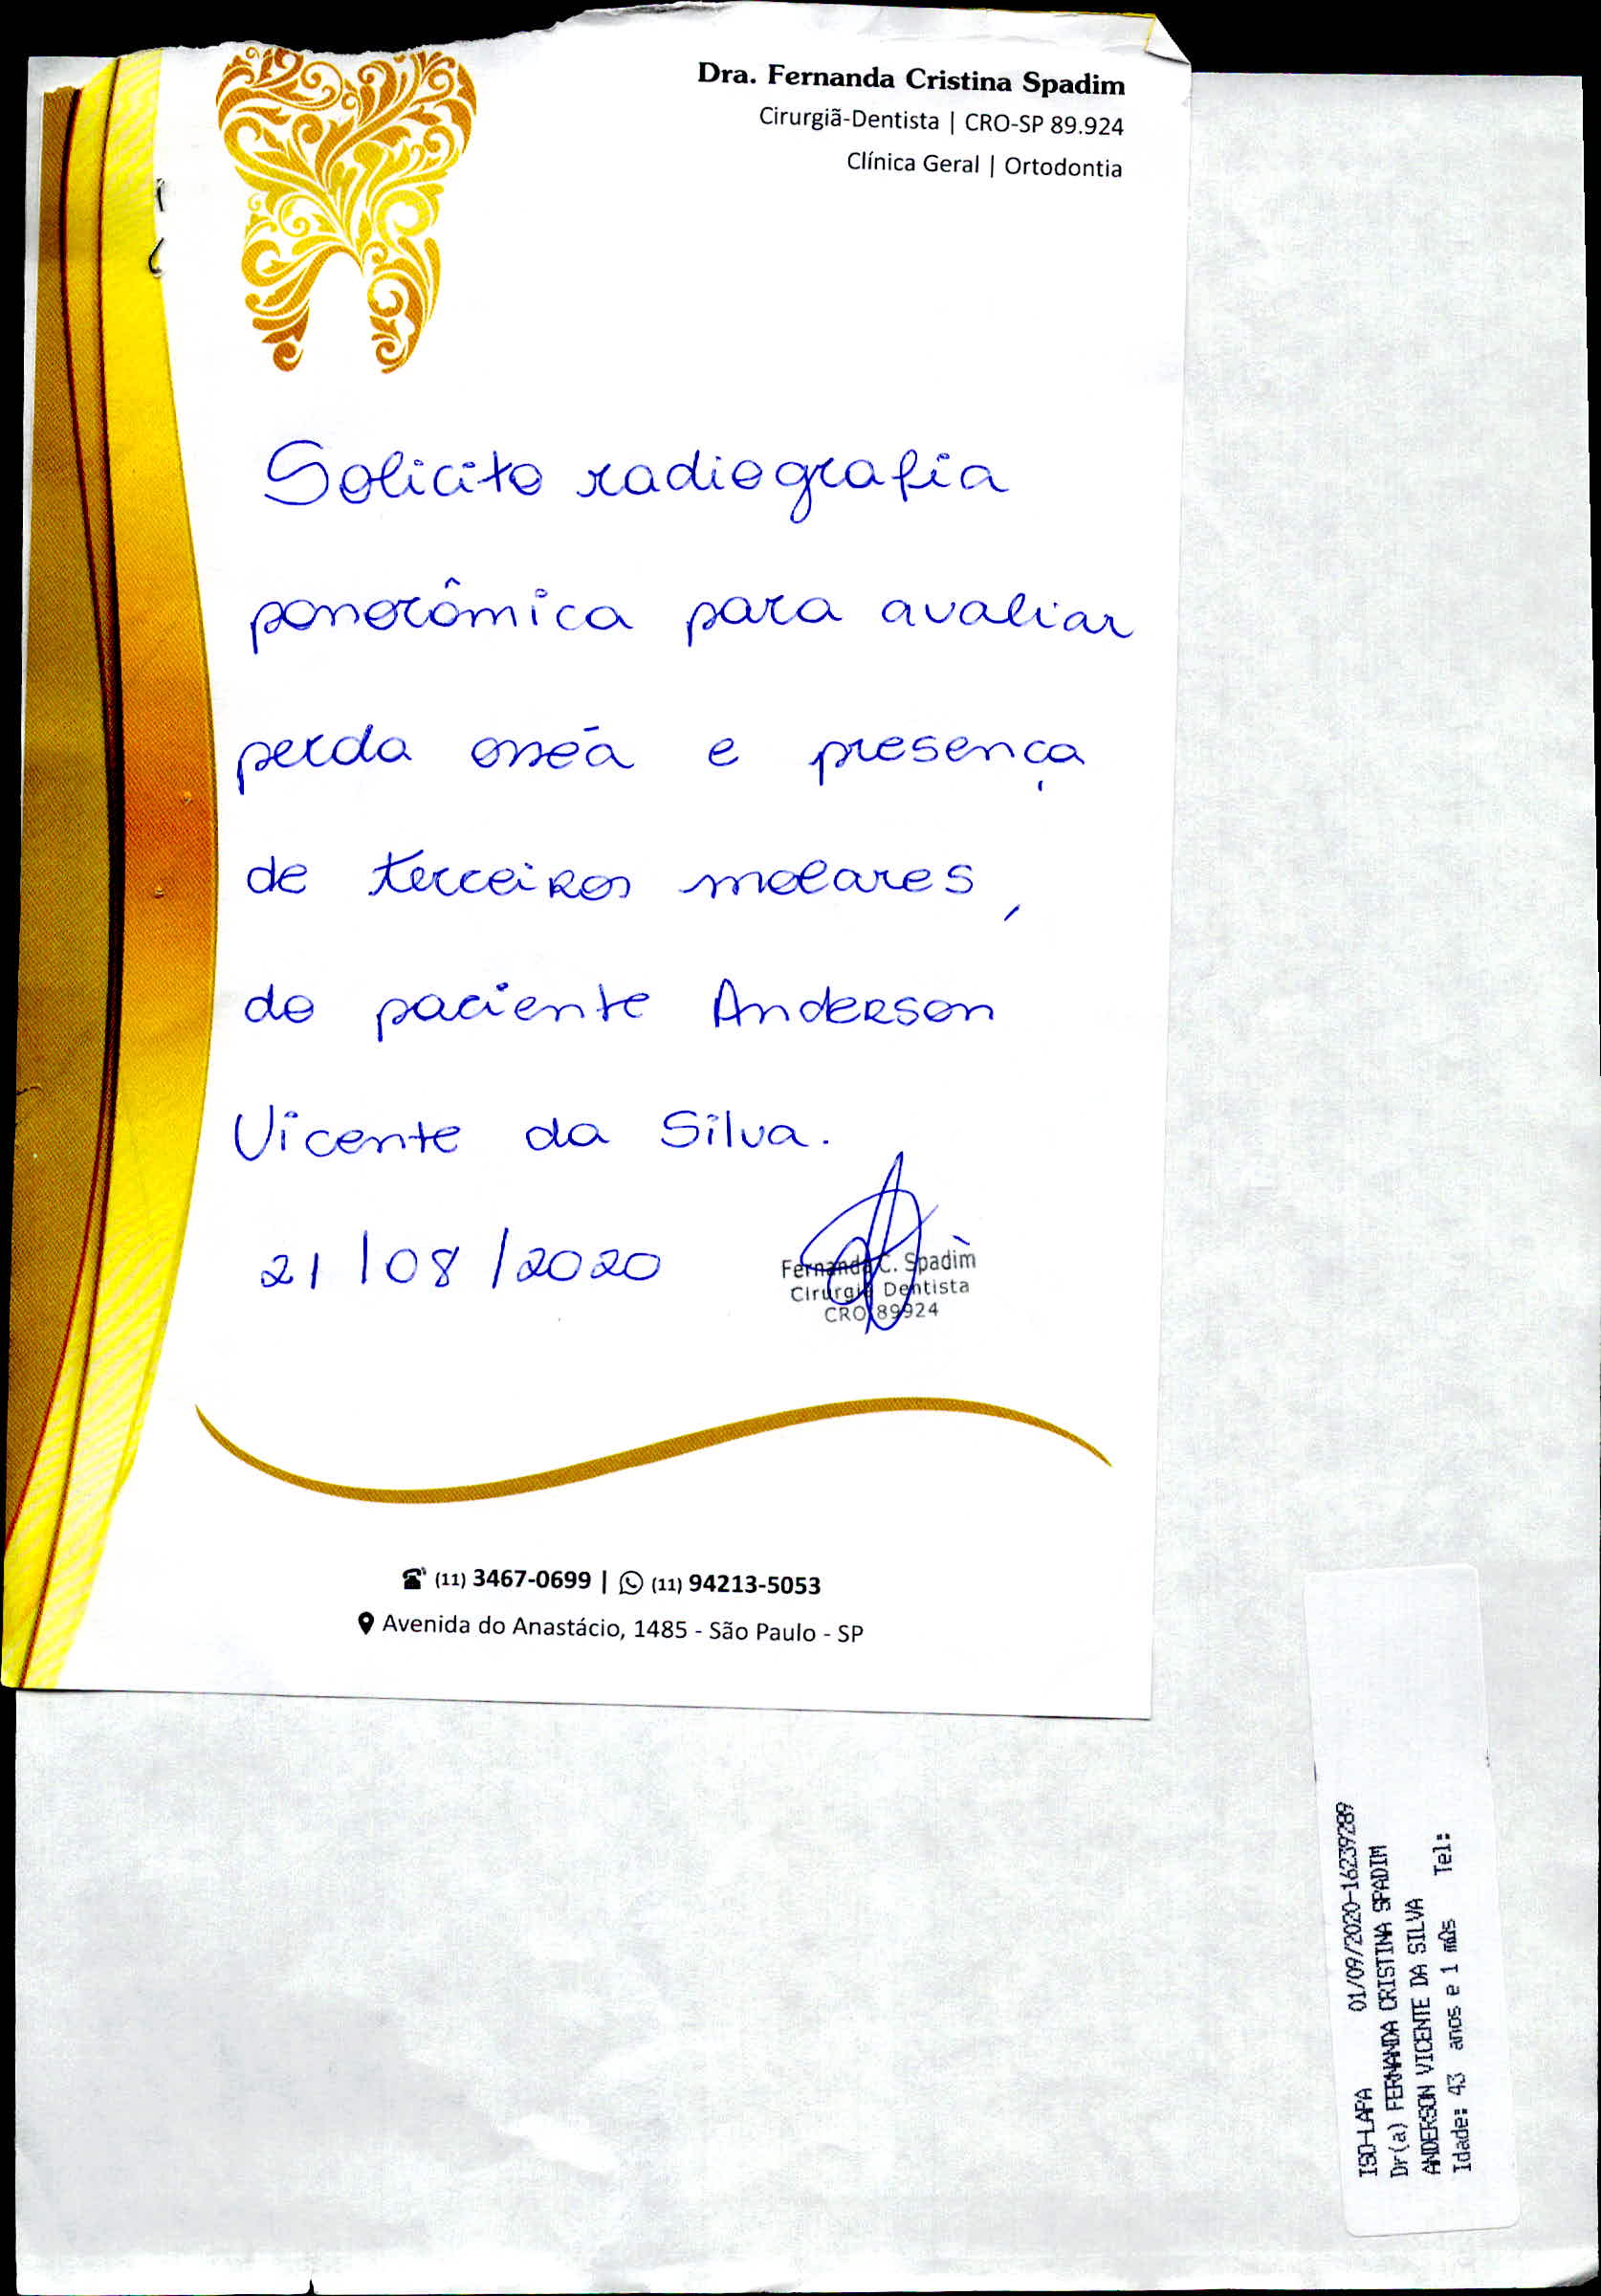 Dra. Fernanda Cristina Spadim
Cirurgiã-Dentista | CRO-SP 89.924
Clínica Geral | Ortodontia
Solicito radiografia
panorâmica para avaliar
perda osséa e presença
de terceiros molares,
do paciente Anderson
Vicente da Silva.
21/08/2020
Fernanda C. Spadim
Cirurgiã Dentista
CRO 89924
(11) 3467-0699 | (11) 94213-5053
Avenida do Anastácio, 1485 - São Paulo - SP
ISO-LAPA 01/09/2020-16239289
Dr(a) FERNANDA CRISTINA SPADIM
ANDERSON VICENTE DA SILVA
Idade: 43 anos e 1 mûs Tel: